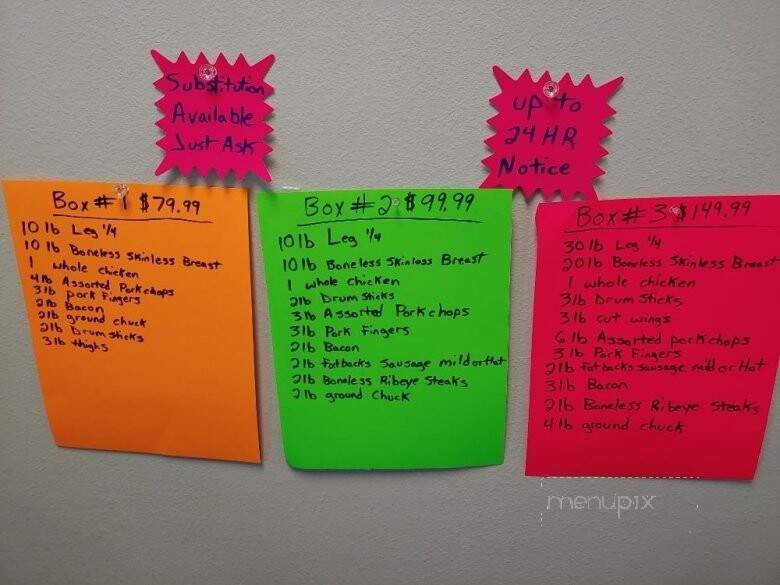 Substitution
Available
Just Ask
up to
24 HR
Notice
Box #1 $79.99
10 lb Leg 1/4
10 lb Boneless Skinless Breast
1 whole chicken
4lb Assorted Porkchops
3lb pork Fingers
2lb Bacon
2lb ground chuck
2lb Drumsticks
3lb thighs
Box #2 $99.99
10 lb Leg 1/4
10 lb Boneless Skinless Breast
1 whole chicken
2lb Drum Sticks
3lb Assorted Porkchops
3lb Pork Fingers
2lb Bacon
2lb fatbacks Sausage mild or Hot
2lb Boneless Ribeye Steaks
2lb ground Chuck
Box #3 $149.99
30 lb Leg 1/4
20 lb Boneless Skinless Breast
1 whole chicken
3lb Drum Sticks
3lb cut wings
6 lb Assorted porkchops
3lb Pork Fingers
2lb fatbacks sausage mild or Hot
3lb Bacon
2lb Boneless Ribeye Steaks
4lb ground chuck
menupix